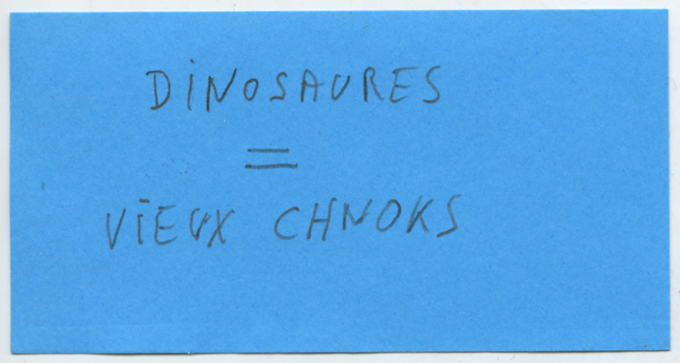 DINOSAURES
=
VIEUX CHNOKS